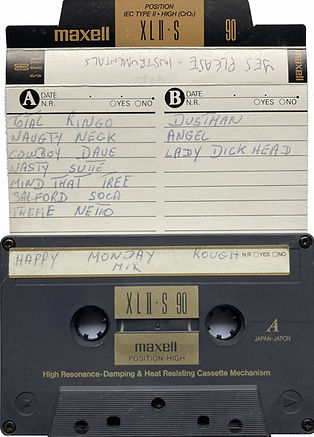 POSITION
IEC TYPE II • HIGH (CrO₂)
maxell XLII-S 90
YES PLEASE - INSTRUMENTALS
MIX
maxell
A DATE
N.R. ○YES ○NO
TOTAL RINGO
NAUGTY NECK
COWBOY DAVE
NASTY SUTTE
MIND THAT TREE
SALFORD SOCA
THEME NETTO
B DATE
N.R. ○YES ○NO
DUSTMAN
ANGEL
LADY DICK HEAD
HAPPY MONDAY ROUGH N.R □YES □NO
MIX
XLII-S 90
maxell
POSITION-HIGH
A
JAPAN-JAPON
High Resonance-Damping & Heat Resisting Cassette Mechanism